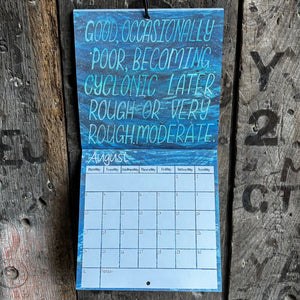 GOOD, OCCASIONALLY
POOR, BECOMING
CYCLONIC LATER
ROUGH OR VERY
ROUGH, MODERATE
August
Monday Tuesday Wednesday Thursday Friday Saturday Sunday
Y
2
GT